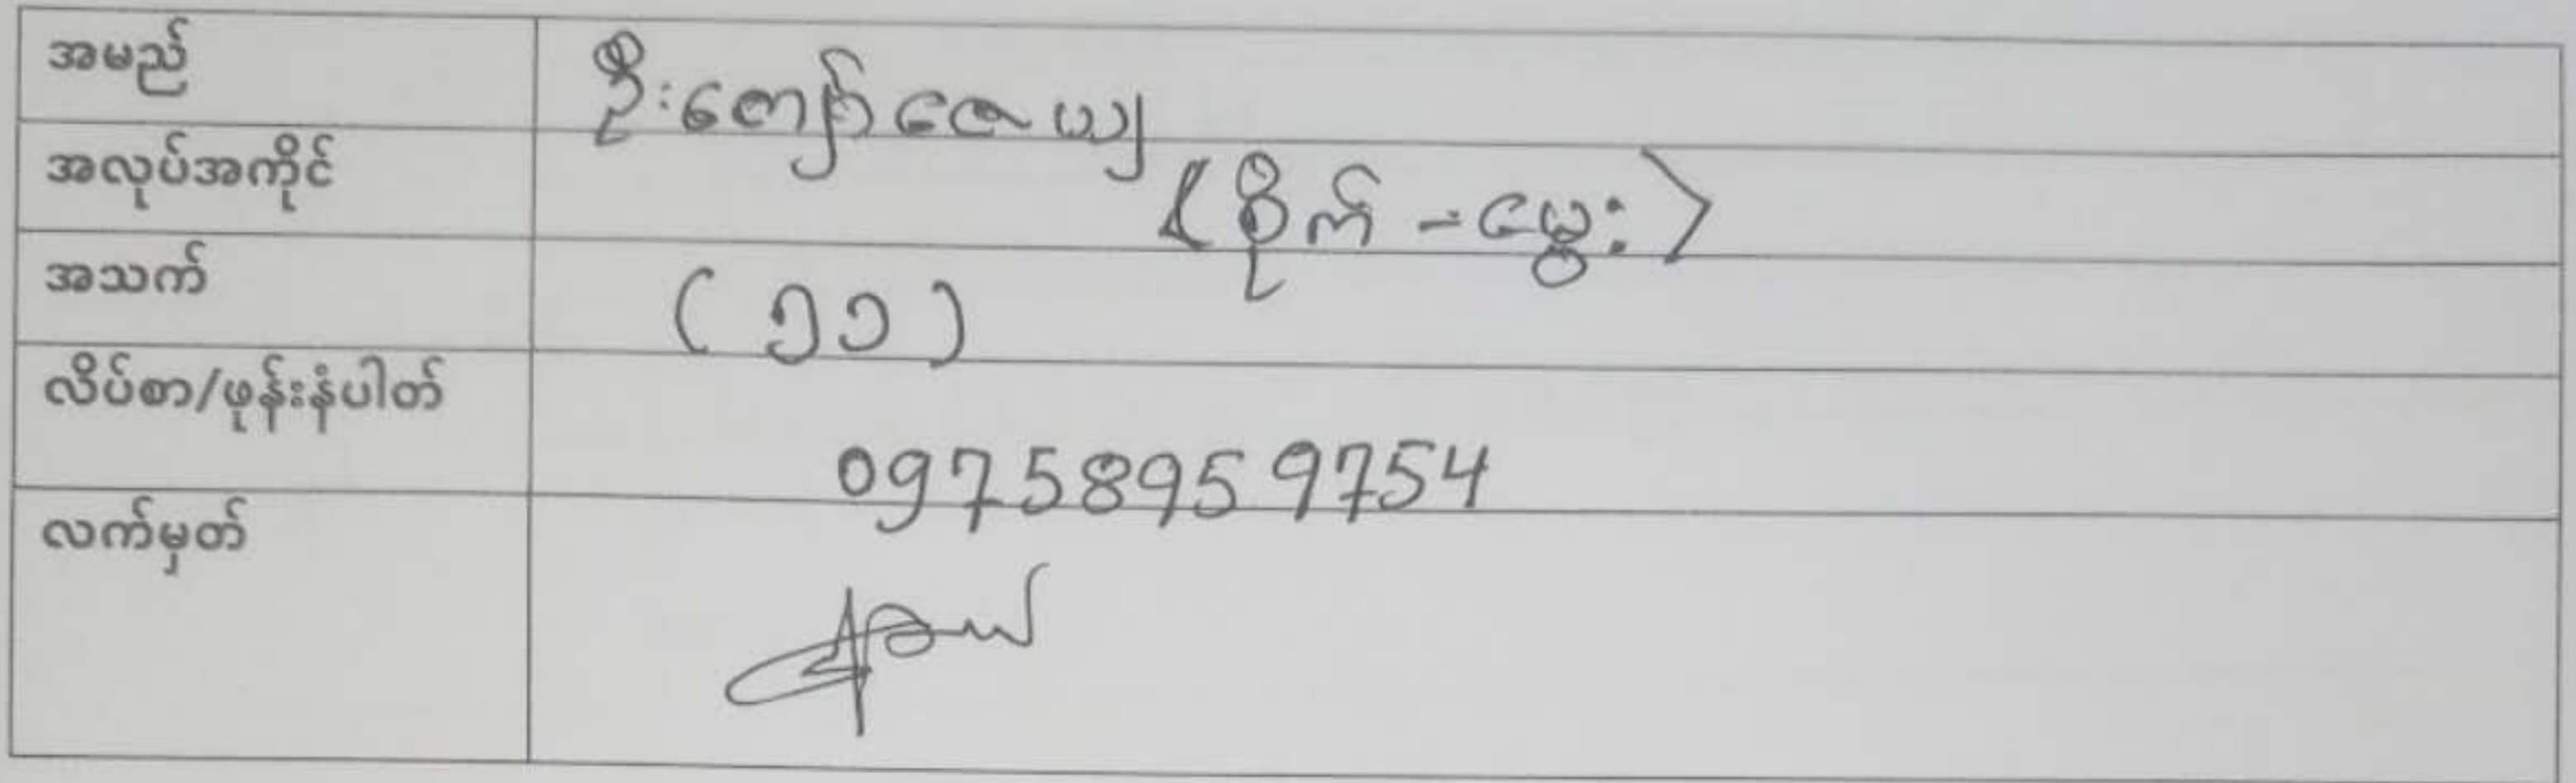 အမည် ဦးကျော်ဇေယျ
အလုပ်အကိုင် (စိုက် - မွေး)
အသက် (၅၁)
လိပ်စာ/ဖုန်းနံပါတ် 09758959754
လက်မှတ်